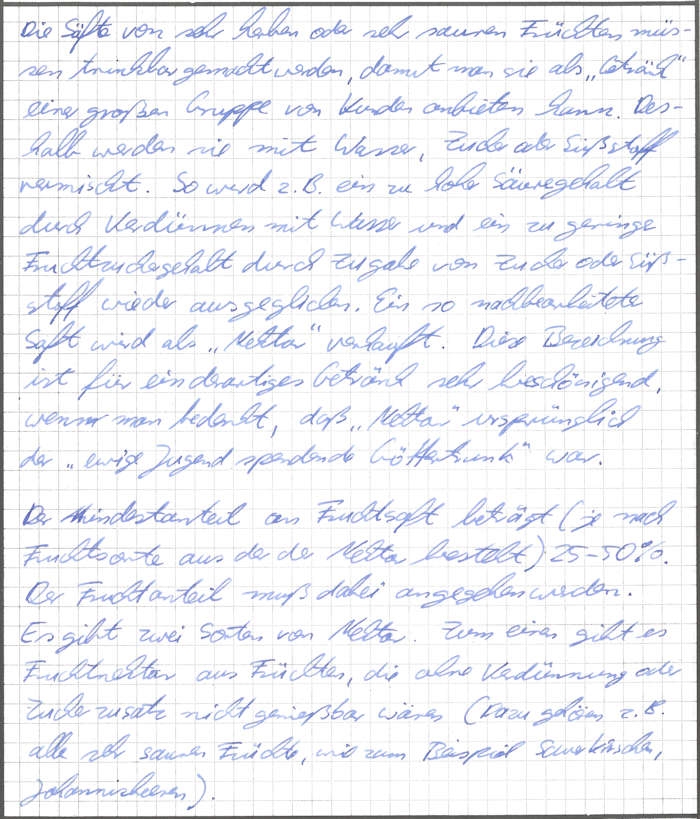 Die Säfte von sehr herben oder sehr sauren Früchten müs-
sen trinkbar gemacht werden, damit man sie als „Getränk"
einer großen Gruppe von Kunden anbieten kann. Des-
halb werden sie mit Wasser, Zucker oder Süßstoff
vermischt. So wird z.B. ein zu hoher Säuregehalt
durch Verdünnen mit Wasser und ein zu geringer
Fruchtzuckergehalt durch Zugabe von Zucker oder Süß-
stoff wieder ausgeglichen. Ein so nachbearbeiteter
Saft wird als „Nektar" verkauft. Diese Bezeichnung
ist für ein derartiges Getränk sehr beschönigend,
wenn man bedenkt, daß „Nektar" ursprünglich
der „ewige Jugend spendende Göttertrunk" war.
Der Mindestanteil an Fruchtsaft beträgt (je nach
Fruchtsorte aus der der Nektar besteht) 25-50%.
Der Fruchtanteil muß dabei angegeben werden.
Es gibt zwei Sorten von Nektar. Zum einen gibt es
Fruchtnektar aus Früchten, die ohne Verdünnung oder
Zuckerzusatz nicht genießbar wären (Dazu gehören z.B.
alle sehr sauren Früchte, wie zum Beispiel Sauerkirschen,
Johannisbeeren).